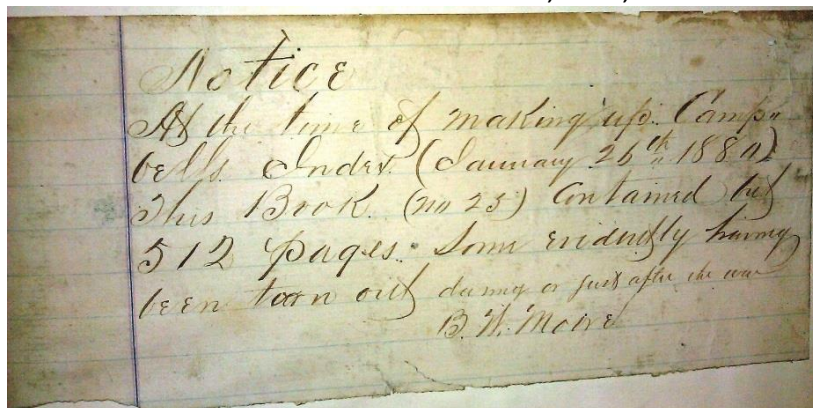 Notice
At the time of making up Camp-
bells Index (January 26th 1880)
This Book (no 25) Contained but
512 pages. Some evidently having
been torn out during or just after the war
B. W. Moore